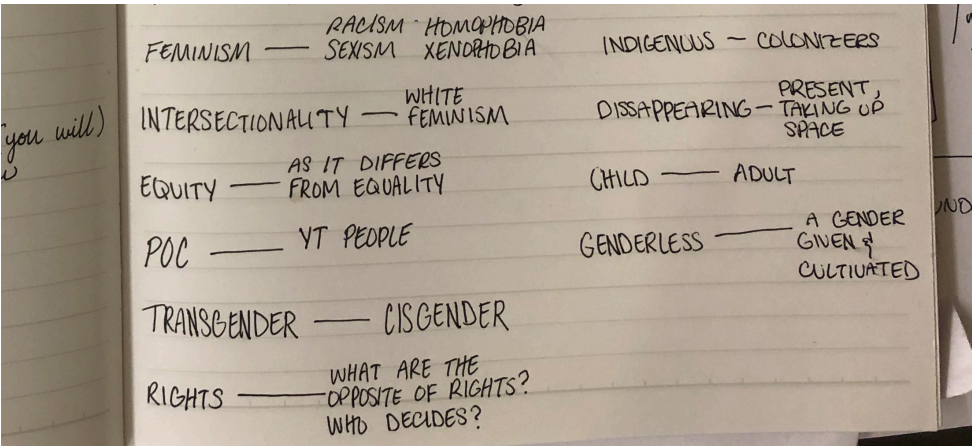 FEMINISM — RACISM · HOMOPHOBIA
SEXISM XENOPHOBIA
INTERSECTIONALITY — WHITE
FEMINISM
EQUITY — AS IT DIFFERS
FROM EQUALITY
POC — YT PEOPLE
TRANSGENDER — CISGENDER
RIGHTS — WHAT ARE THE
OPPOSITE OF RIGHTS?
WHO DECIDES?
INDIGENOUS — COLONIZERS
DISSAPPEARING — PRESENT,
TAKING UP
SPACE
CHILD — ADULT
GENDERLESS — A GENDER
GIVEN &
CULTIVATED
you will)